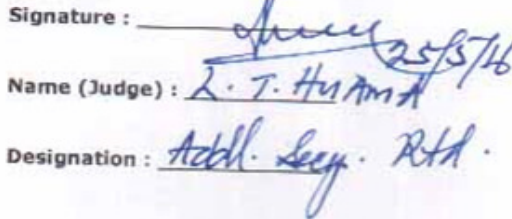 Signature :
25/5/16
Name (Judge) : L. T. Huama
Designation : Addl. Secy. Rtd.